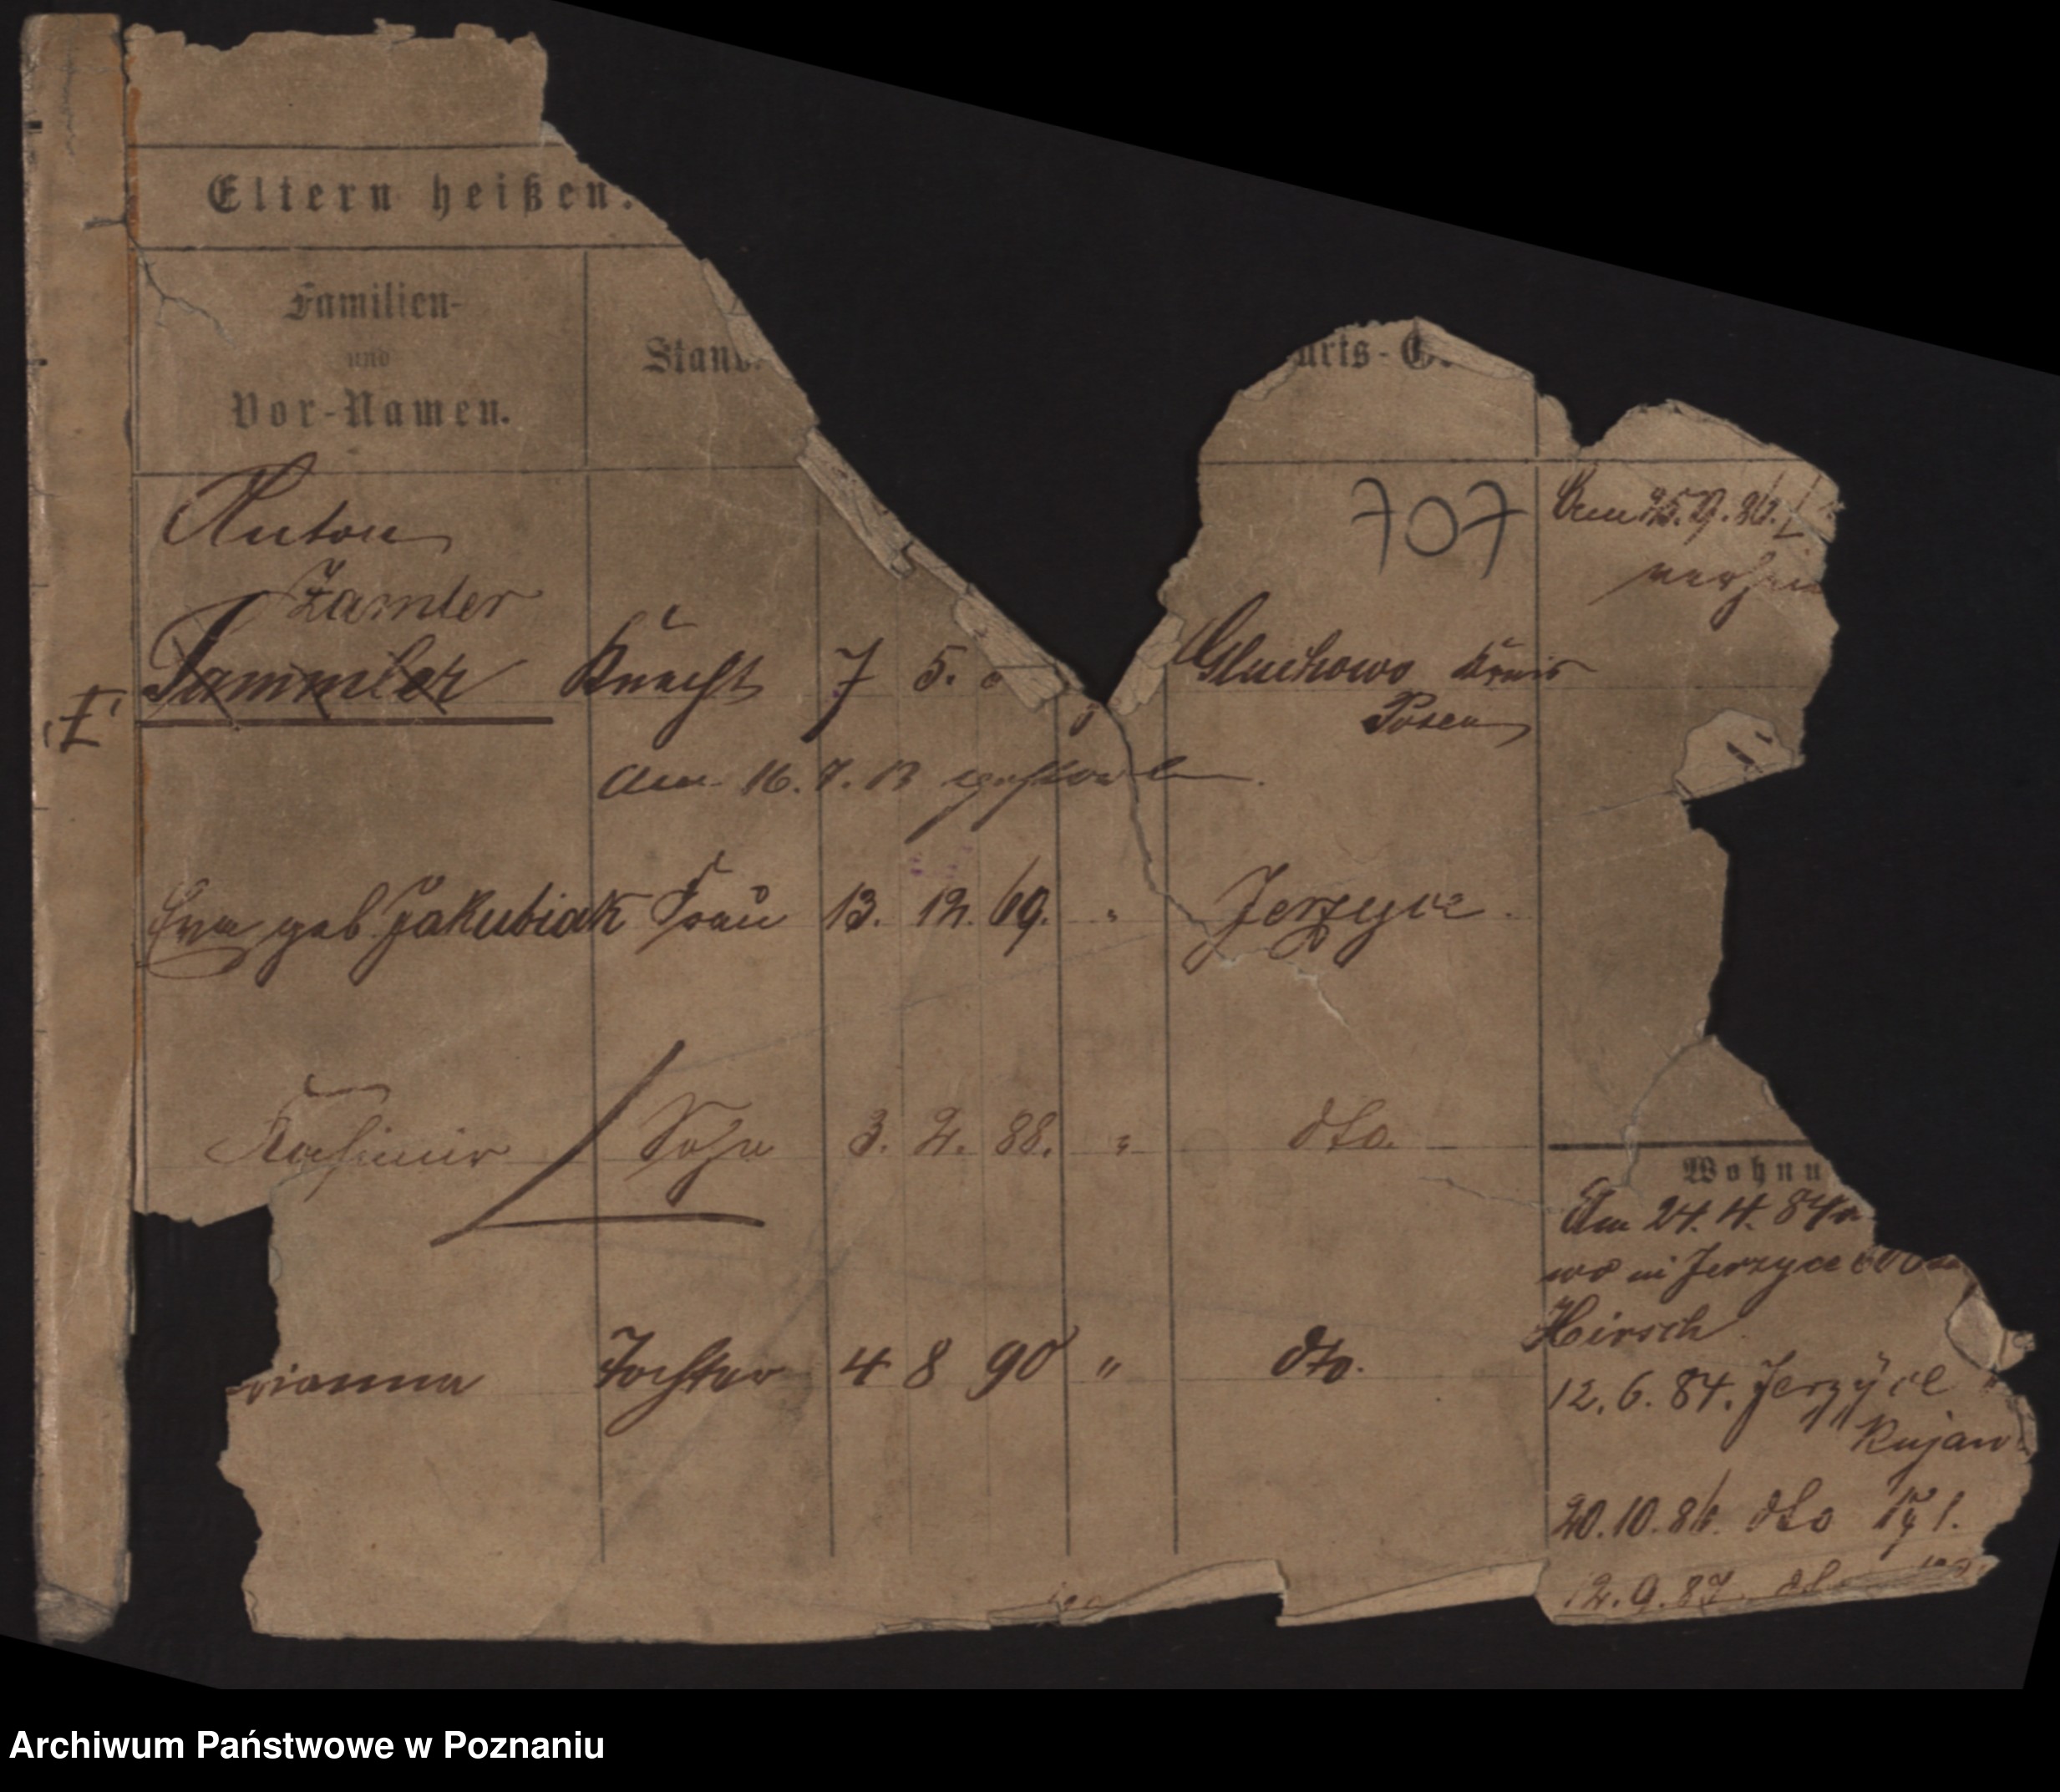 Eltern heißen.
Familien-
und
Vor-Namen.
Stand.
urts-O
707
Am 25.9.86.
verhei
Anton
Zamler
Tammler Knecht 7 5.
Gluchowo Kreis
Posen
I
Am 16.7.13 gestorben.
Eva geb Jakubiak Frau 13. 12. 69. " Jerzyce
Kasimir Sohn 3. 2. 88. " dto.
rianna Tochter 4 8 90 " dto.
Wohnu
Am 24. 4. 84
wo in Jerzyce
Hirsch
12. 6. 84. Jerzyce
Kujaw
20.10.86. dto
12.9.87. dto
Archiwum Państwowe w Poznaniu